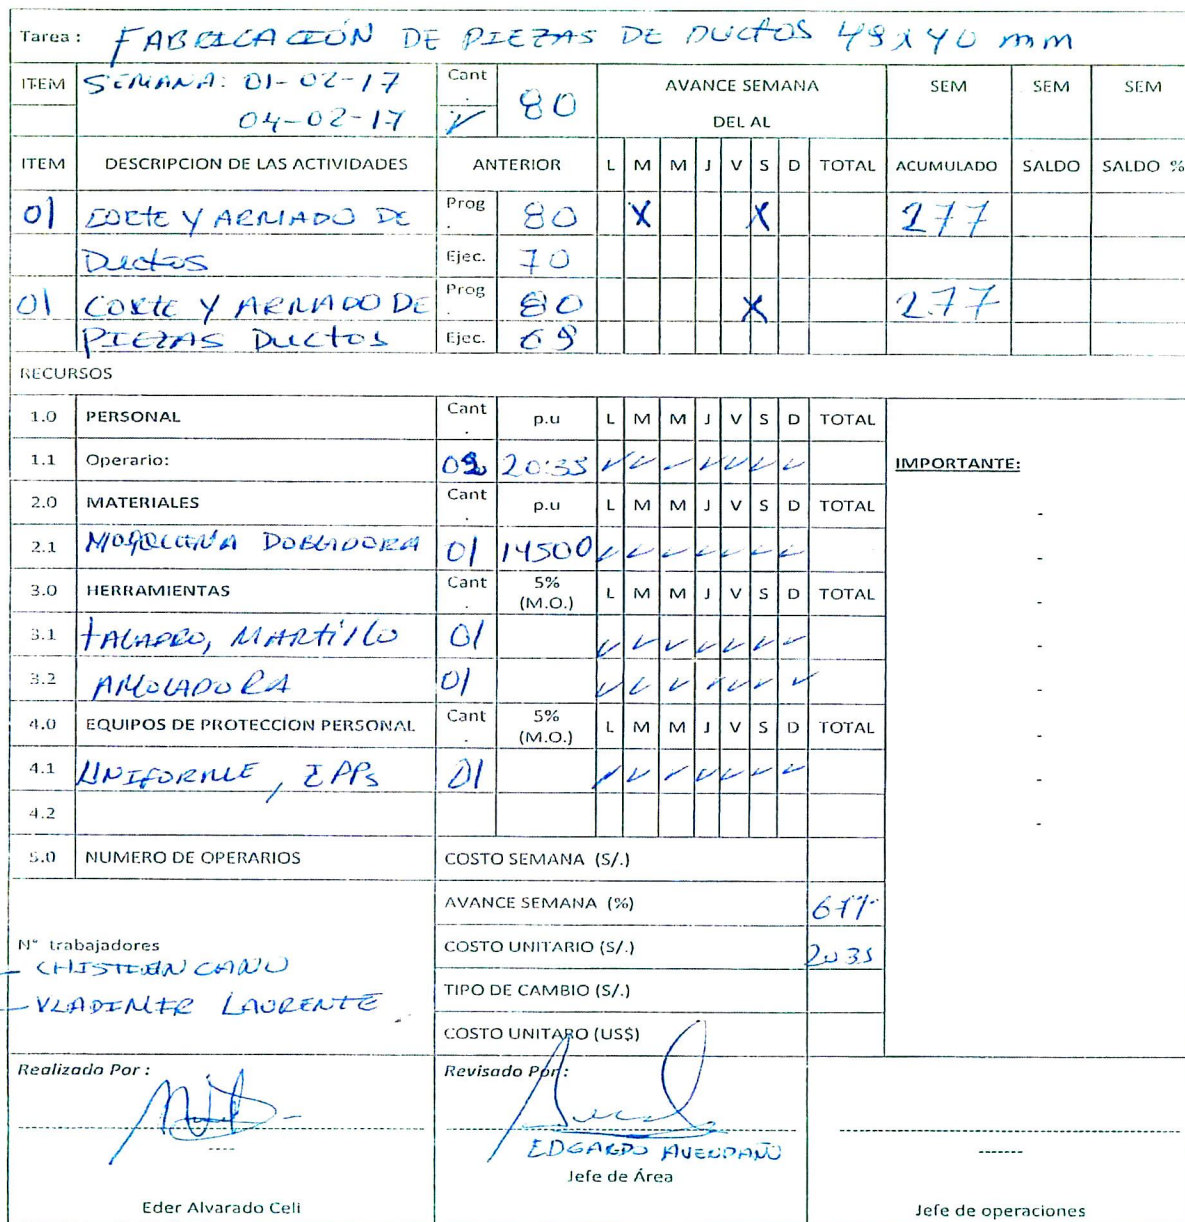 Tarea : FABRICACIÓN DE PIEZAS DE DUCTOS 49x40 mm
ITEM SEMANA: 01-02-17 Cant . 80 AVANCE SEMANA SEM SEM SEM
04-02-17 DEL AL
ITEM DESCRIPCION DE LAS ACTIVIDADES ANTERIOR L M M J V S D TOTAL ACUMULADO SALDO SALDO %
01 CORTE Y ARMADO DE Prog . 80 X X 277
Ductos Ejec. 70
01 CORTE Y ARMADO DE Prog . 80 X 277
PIEZAS DUCTOS Ejec. 69
RECURSOS
1.0 PERSONAL Cant . p.u L M M J V S D TOTAL
1.1 Operario: 02 20:35 ✓ ✓ ✓ ✓ ✓ ✓ ✓ IMPORTANTE:
2.0 MATERIALES Cant . p.u L M M J V S D TOTAL -
2.1 MAQUINA DOBLADORA 01 14500 ✓ ✓ ✓ ✓ ✓ ✓ ✓ -
3.0 HERRAMIENTAS Cant . 5% (M.O.) L M M J V S D TOTAL -
3.1 TALADRO, MARTILLO 01 ✓ ✓ ✓ ✓ ✓ ✓ ✓ -
3.2 AMOLADORA 01 ✓ ✓ ✓ ✓ ✓ ✓ ✓ -
4.0 EQUIPOS DE PROTECCION PERSONAL Cant . 5% (M.O.) L M M J V S D TOTAL -
4.1 UNIFORME, EPPs 01 ✓ ✓ ✓ ✓ ✓ ✓ ✓ -
4.2 -
5.0 NUMERO DE OPERARIOS COSTO SEMANA (S/.)
AVANCE SEMANA (%) 67%
N° trabajadores COSTO UNITARIO (S/.) 2035
- CHISTIAN CANO
TIPO DE CAMBIO (S/.)
- VLADIMIR LAURENTE
COSTO UNITARO (US$)
Realizado Por : Revisado Por :
EDGARDO AVENDAÑO
Jefe de Área
Eder Alvarado Celi Jefe de operaciones